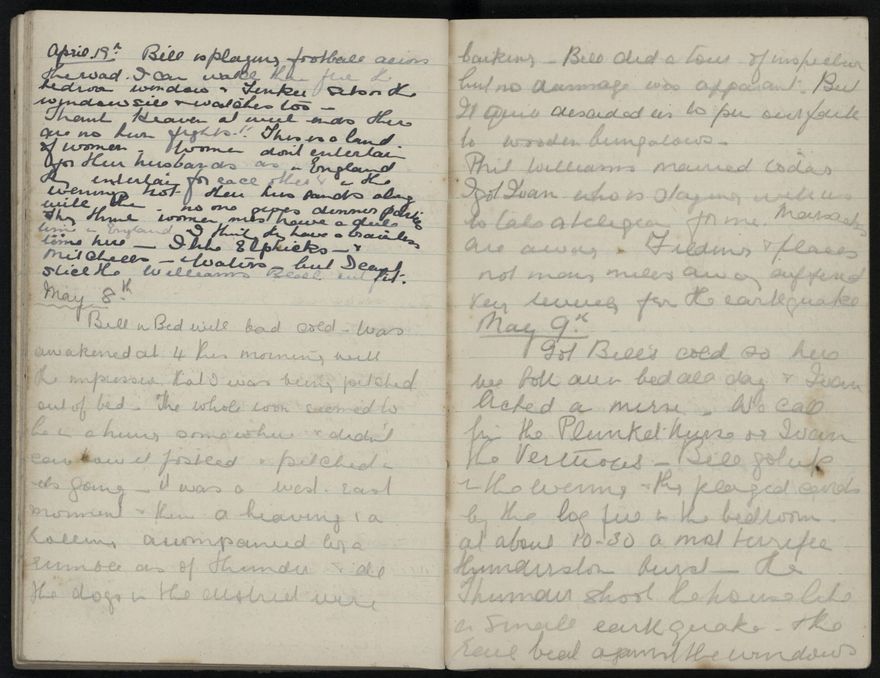 April 19th Bill is playing football across
the road. I can watch him from the
bedroom window & Tinker sits on the
window sill & watches too -
Thank Heaven at week ends there
are no hun flights!! This is a land
of women - Women don't entertain
for their husbands as in England
they entertain for each other & in the
evening not their husbands along
with - no one gives dinner parties
The women must have a dull
time in England I think they have a brainless
time here - I like Elpricks - &
Mitchells - Waters but I can't
stick the Williams
May 8th
Bill in Bed with bad cold - Was
awakened at 4 this morning with
the impression that I was being pitched
out of bed. The whole room seemed to
be in a hurry somewhere & didn't
care how it jostled & pitched in
its going - it was a west-east
movement & then a heaving & a
rolling accompanied by a
rumble as of thunder & all
the dogs in the district were
barking - Bill did a tour of inspection
but no damage was apparent. But
It quite decided us to pin our faith
to wooden bungalows -
Phil Williams married today
I got Ivan who is staying with us
to take a telegram for me
are away. Feilding & places
not many miles away suffered
very severely for the earthquake
May 9th
Got Bill's cold so here
we both are in bed all day & Ivan
acted a nurse. We call
him the Plunket Nurse or Ivan
the Vertuous - Bill got up
in the evening & they played cards
by the log fire in the bedroom.
at about 10-30 a most terrific
thunderstorm burst - the
Thunder shook the house like
a small earthquake - the
rain beat against the windows